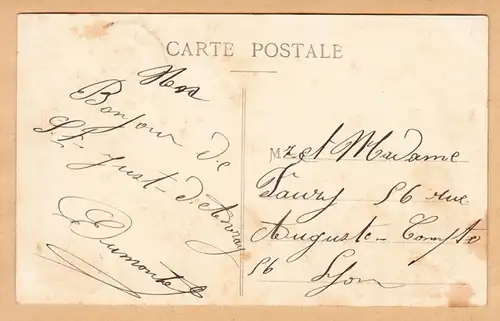 CARTE POSTALE
Nos
Bonjour de
St-Just-d'Avray
Dumontet
M et Madame
Faury 56 rue
Auguste-Comte
56 Lyon